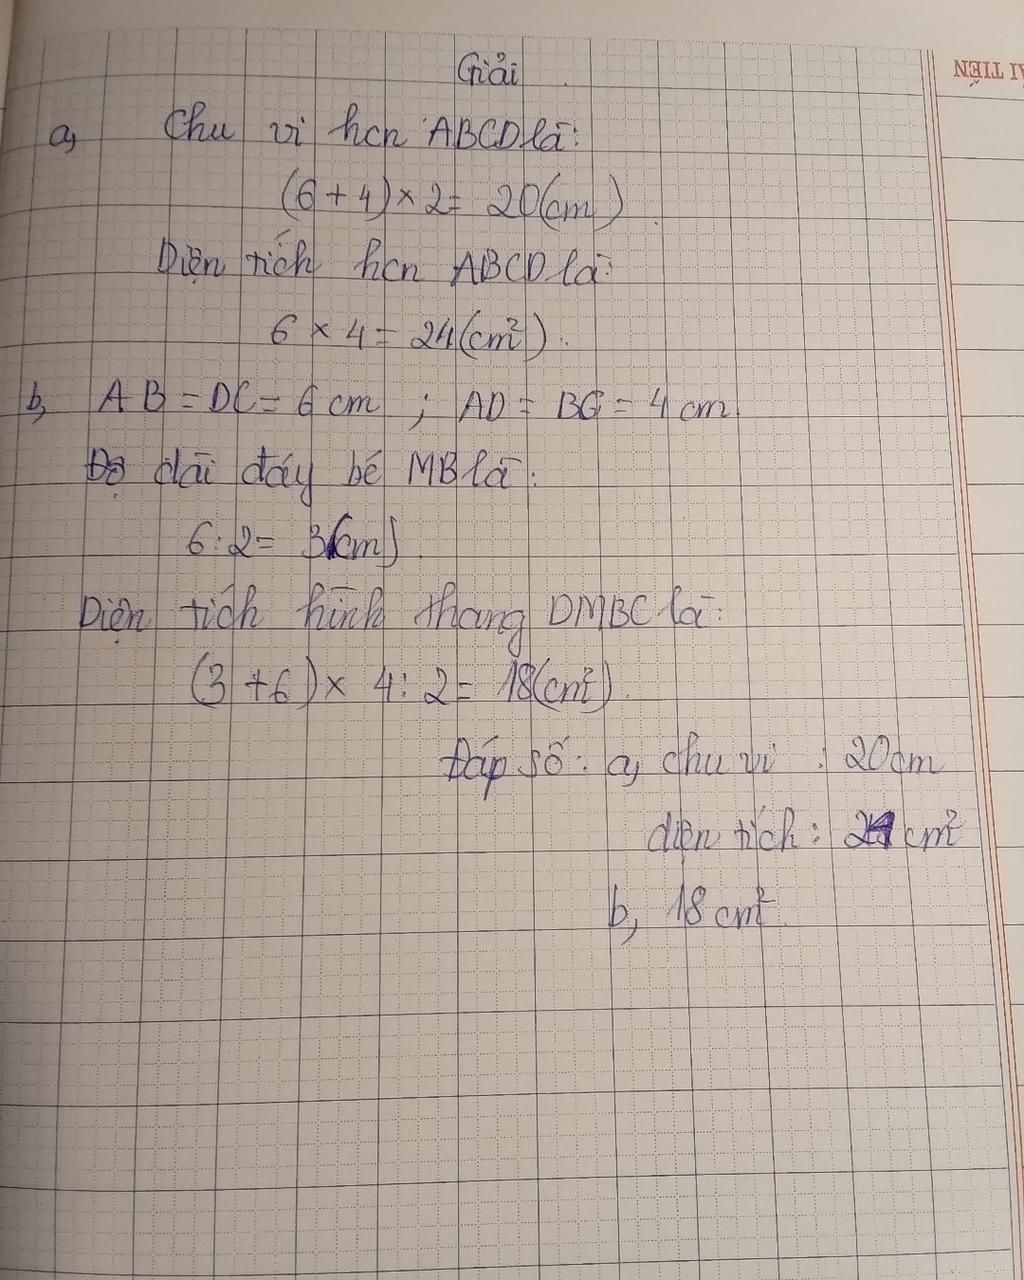 Giải
a, Chu vi hcn ABCD là:
(6 + 4) × 2 = 20(cm)
Diện tích hcn ABCD là:
6 × 4 = 24(cm²).
b, AB = DC = 6 cm ; AD = BC = 4 cm
Độ dài đáy bé MB là:
6 : 2 = 3(cm).
Diện tích hình thang DMBC là:
(3 + 6) × 4 : 2 = 18(cm²).
Đáp số: a, chu vi : 20cm
diện tích : 24 cm²
b, 18 cm²